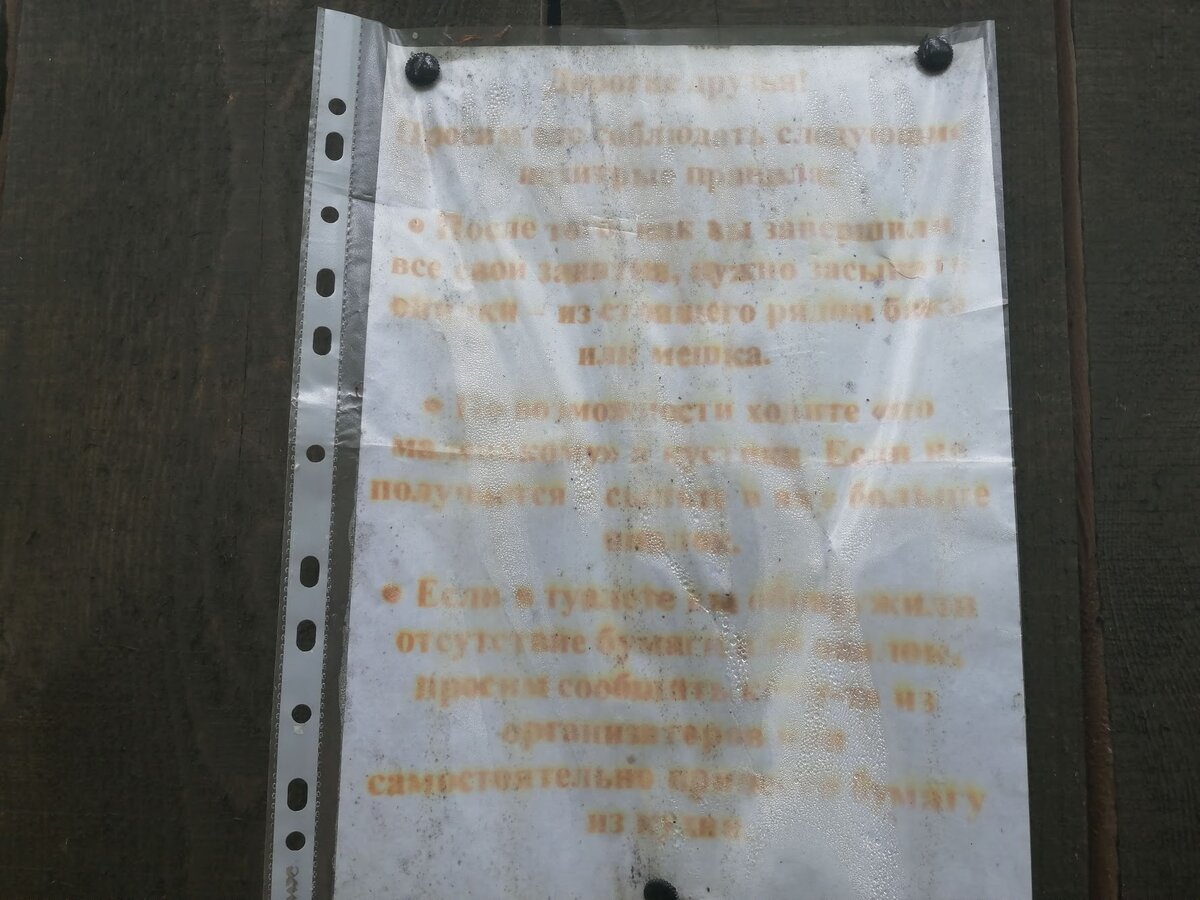 Дорогие друзья!
Просим вас соблюдать следующие
нехитрые правила:
• После того, как вы завершили
все свои занятия, нужно засыпать
опилки – из стоящего рядом бака
или мешка.
• По возможности ходите «по
маленькому» в кустики. Если не
получается – сыпьте в яму больше
опилок.
• Если в туалете вы обнаружили
отсутствие бумаги или опилок,
просим сообщить из
организаторов или
самостоятельно бумагу
из кухни.